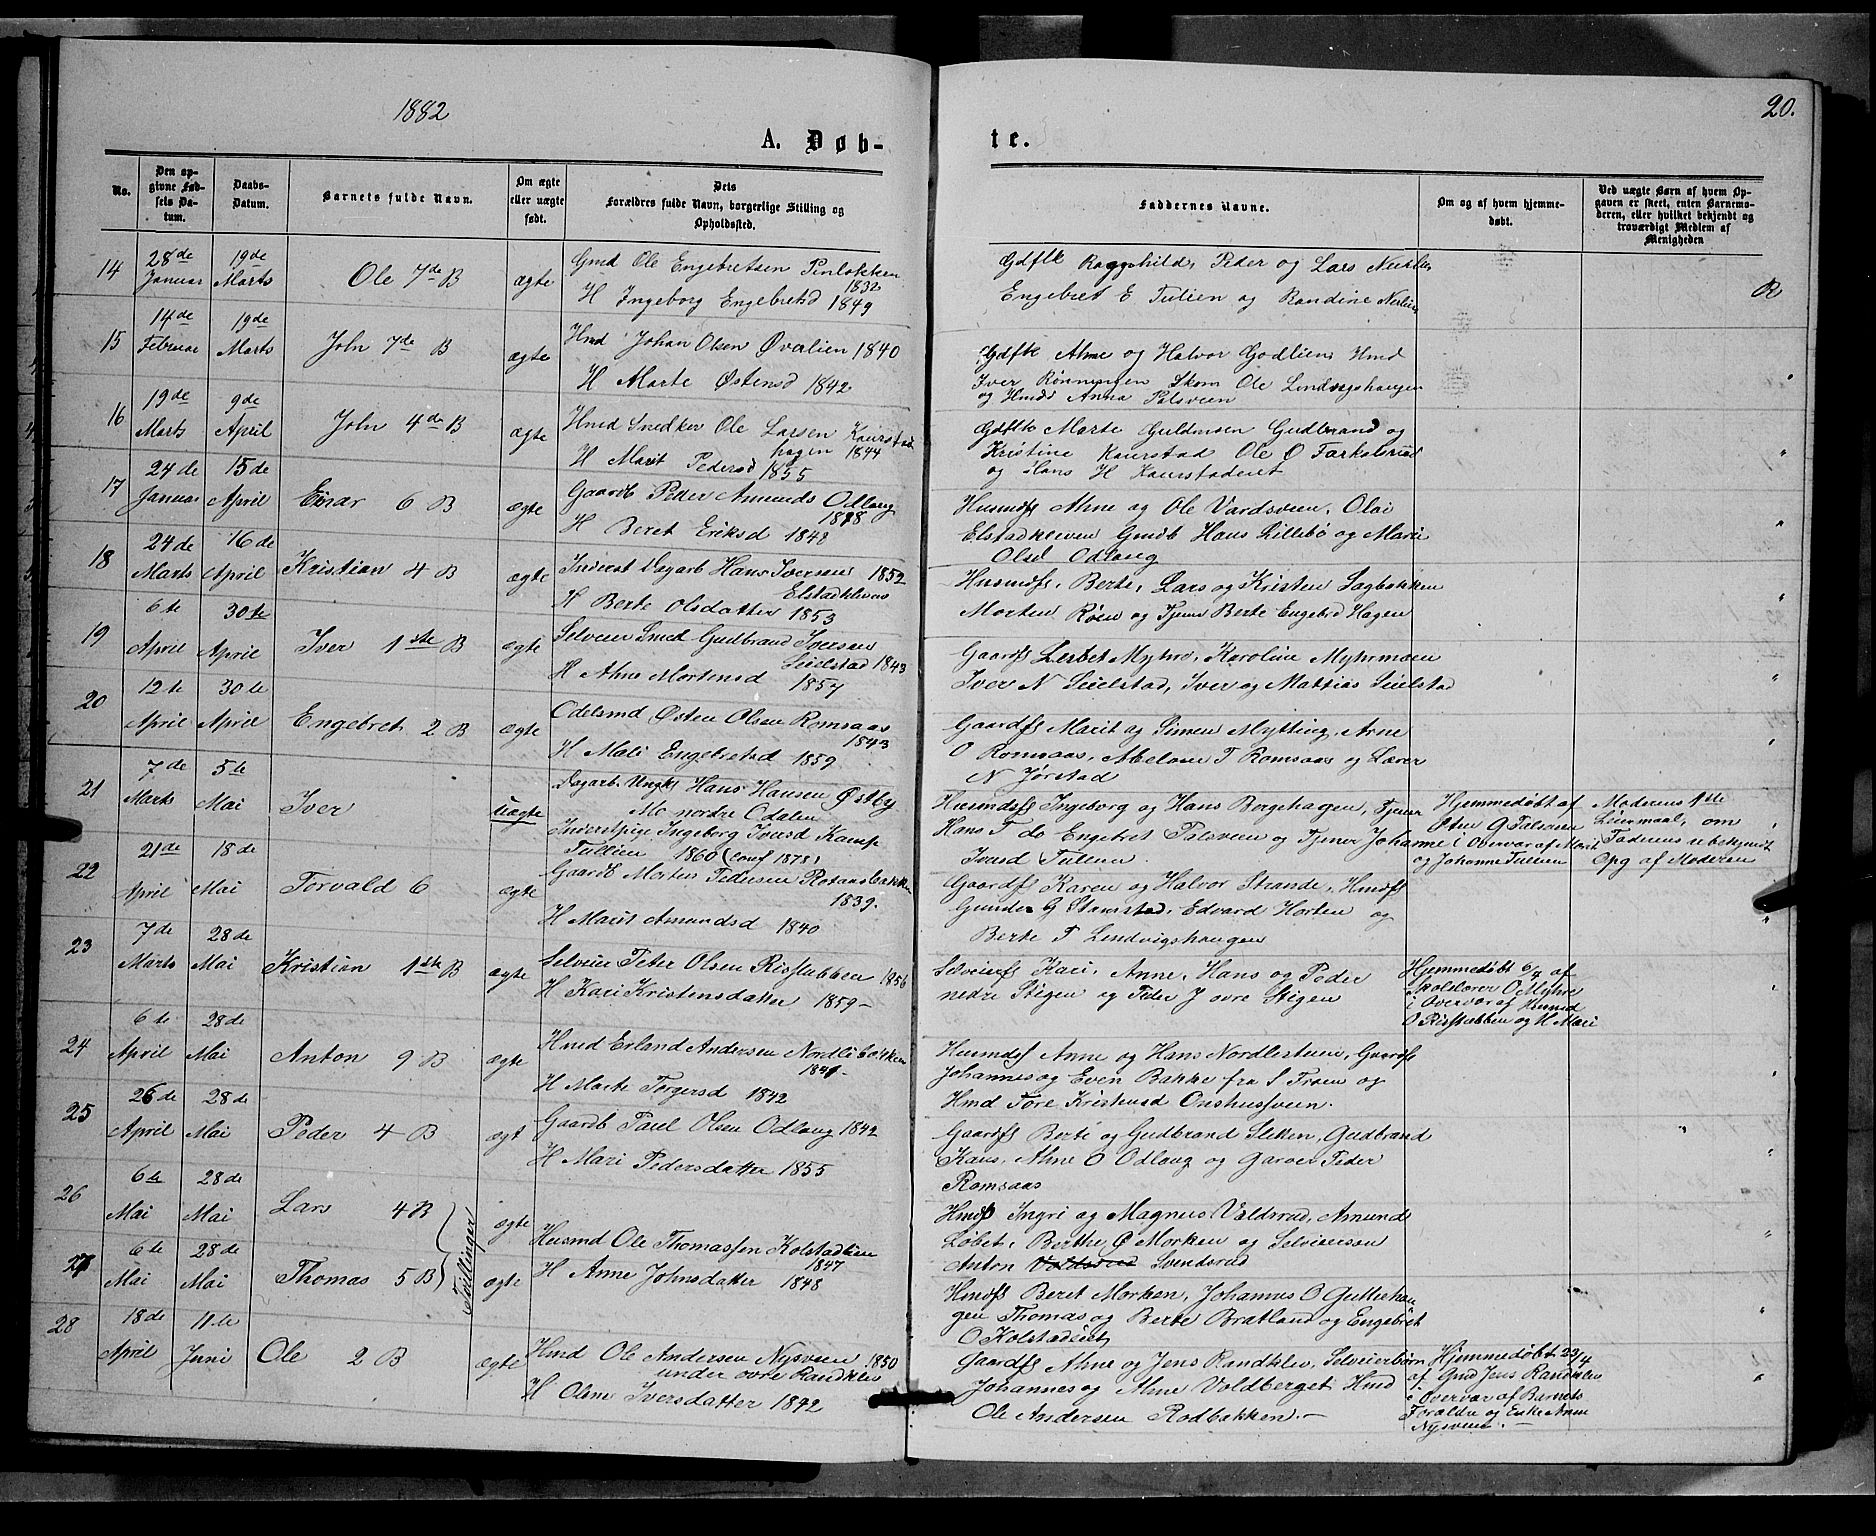 1882
20.
A. Døb-
te.
No.
Den op-
givne Fød-
sels Da-
tum.
Daabs-
Datum.
Barnets fulde Navn.
Om ægte
eller uægte
født.
Dets
Forældres fulde Navn, borgerlige Stilling og
Opholdssted.
Faddernes Navne.
Om og af hvem hjemme-
døbt.
Ved uægte Børn af hvem Op-
gaven er skeet, enten Barnemo-
deren, eller hvilket bekjendt og
troværdigt Medlem af
Menigheden
14 28de Januar 19de Marts Ole 7de B ægte
Gmd Ole Engebretsen Pinløkken
1832
H Ingeborg Engebretsd 1849
Gdfk Ragnhild, Peder og Lars
Engebret E Tulien og Randine Nerlien
R
15 14de Februar 19de Marts John 7de B ægte
Hmd Johan Olsen Øverlien 1840
H Marte Østensd 1842
Gdfk Ahne og Halvor Godlien Hmd
Iver Rønningen Skom Ole Lindvigshaugen
og Hmds Anna Palsveen
"
16 19de Marts 9de April John 4de B ægte
Hmd Snedker Ole Larsen Kaurstad
hagen 1844
H Marit Pedersd 1855
Gdfk Marte Guldmoen Gudbrand og
Kristine Kaurstad Ole O
og Hans H Kaurstaderet
"
17 24de Januar 15de April Einar 6 B ægte
Gaardb Peder Amunds Odlaug
H Beret Eriksd 1842
Husmdfk Ahne og Ole Vardsveen, Olai
Elstadkleven Gmdb Hans Lillebø og Mari
Olsd Odlaug
"
18 24de Marts 16de April Kristian 4 B ægte
Inderst Dagarb Hans Iversen 1852
Elstadkleven
H Berte Olsdatter 1853
Husmdfk. Berte, Lars og Kristen Sagbakken
Morten Røen og Tjener Berte Engebrd Hagen
"
19 6te April 30te April Iver 1ste B ægte
Selveier Smed Gudbrand Iversen
Seielstad 1843
H Ahne Mortensd 1857
Gaardfk Lisbet Myhre, Karoline Myhrmoen
Iver N Seielstad, Iver og Mattias Seielstad
"
20 12te April 30te April Engebret 2 B ægte
Odelsmd Østen Olsen Romsaas
1843
H Mali Engebretsd 1859
Gaardfk Marit og Simen Mytting, Arne
O Romsaas, T Romsaas og Lærer
N Jørstad
"
21 7de Marts 5te Mai Iver uægte
Dagarb Ungk Hans Hansen Østby
nordre Odalen
Inderstpige Ingeborg Iversd Kamp
Tulien 1860 (conf 1878)
Husmdsfk Ingeborg og Hans Berghagen, Tjener
Hans T do Engebret Palsveen og Tjener Johanne
Iversd Tulien.
Hjemmedøbt af
Østen G Palsveen
i Overvær af Marit
og Johanne Tulien
Moderens 1ste
Leiermaal, om
Faderens ubekjendt
Opg af Moderen
"
22 21de April 18de Mai Torvald 6 ægte
Gaardb Morten Pedersen Rolandsbakken
1839.
H Marit Amundsd 1840
Gaardfk Karen og Halvor Strande, Hmdfk
Gunder G Stamstad, Edvard Horten og
Berte T Lindvigshaugen
"
23 7de Marts 28de Mai Kristian 1ste B ægte
Selveier Peter Olsen Risstubben 1856
H Kari Kristensdatter 1859-
Selveierfk Kari, Anne, Hans og Peder
nedre Stigen og Peder J øvre Stigen
Hjemmedøbt 6/4 af
Skolelærer O Myhre
i Overvær af Husmd
O Risstubben og H Mari
"
24 6te April 28de Mai Anton 9 B ægte
Hmd Erland Andersen Nordlibakken
1841-
H Marte Torgersd 1842
Husmdsfk Anne og Hans Nordlistuen, Gaardfk
Johannes og Even Bakke fra S Froen og
Hmd Tore Kristensd Onshussveen.
"
25 26de April 28de Mai Peder 4 B ægt
Gaardb Paul Olsen Odlaug 1842
H Mari Pedersdatter 1855
Gaardfk Berte og Gudbrand Sletten, Gudbrand
Kaus, Ahne O Odlaug og Garver Peder
Romsaas
"
26 6te Mai 28de Mai Lars 4 B ægte
27 6te Mai 28de Mai Thomas 5 B ægte
Tvillinger
Husmd Ole Thomassen Kolstadlien
1847
H Anne Johnsdatter 1848
Hmdfk Ingri og Magnus Voldsrud, Amund
Løbet, Berthe O Morken og Selveiersøn
Anton Voldsrud Svendsrud
"
Hmdfk Beret Morken, Johannes O Guttehau
gen Thomas og Berte Bratland og Engebret
O Kolstadlien
"
28 18de April 11te Juni Ole 2 B ægte
Hmd Ole Andersen Nysveen 1850
under øvre Randklev
H Olene Iversdatter 1842
Gaardfk Ahne og Jens Randklev, Selveierbørn
Johannes og Ahne Voldberget Hmd
Ole Andersen Rodbakken.-
Hjemmedøbt 23/4
af Gmd Jens Randklev
i Overvær af Barnets
Forældre og Enke Anne
Nysveen.-
"